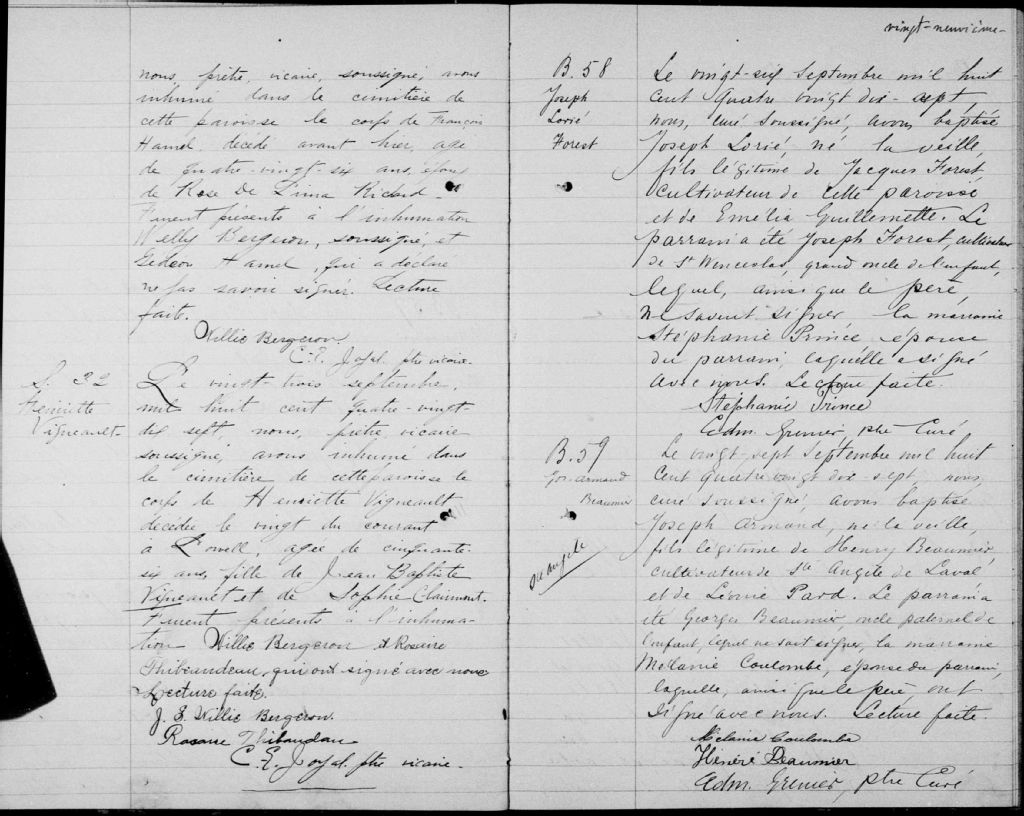 nous, prêtre, vicaire, soussigné, avons
inhumé dans le cimitière de
cette paroisse le corps de François
Hamel décédé avant hier, age
de quatre-vingt-six ans, époux
de Rose De Lima Ricard.
Furent présents à l'inhumation
Willy Bergeron, soussigné, et
Gédéon Hamel, qui a déclaré
ne pas savoir signer. Lecture
faite.
Willie Bergeron
C. E. Joyal ptre vicaire.
S. 32
Henriette
Vigneault
Le vingt-trois septembre,
mil huit cent quatre-vingt-
dix sept, nous, prêtre, vicaire
soussigné, avons inhumé dans
le cimitière de cette paroisse le
corps de Henriette Vigneault
décédée le vingt du courant
à Lowell, agée de cinquante-
six ans, fille de Jean Baptiste
Vigneault et de Sophie Clairmont.
Furent présents à l'inhuma-
tion Willie Bergeron & Rosaire
Thibaudeau, qui ont signé avec nous
Lecture faite.
J. E. Willie Bergeron.
Rosaire Thibaudau
C. E. Joyal ptre vicaire.
vingt-neuvième-
B. 58
Joseph
Lorié
Forest
Le vingt-six Septembre mil huit
cent quatre vingt dix-sept,
nous, curé soussigné, avons baptisé
Joseph Lorié, né la veille,
fils légitime de Jacques Forest,
cultivateur de cette paroisse
et de Emélia Guillemette. Le
parrain a été Joseph Forest, cultivateur
de St Wenceslas, grand oncle de l'enfant,
lequel, ainsi que le père,
ne savent signer la marraine
Stéphanie Prince épouse
du parrain, laquelle a signé
avec nous. Lecture faite.
Stéphanie Prince
Edm. Grenier, ptre Curé
B. 59
Jos. armand
Beaumier
Ste angèle
Le vingt-sept Septembre mil huit
cent quatre vingt dix-sept, nous,
curé soussigné, avons baptisé
Joseph Armand, né la veille,
fils légitime de Henry Beaumier,
cultivateur de Ste Angèle de Laval
et de Léonie Pard. Le parrain a
été Georges Beaumier, oncle paternel de
l'enfant, lequel ne sait signer, la marraine
Mélanie Coulombe, épouse du parrain,
laquelle, ainsi que le père, ont
signé avec nous. Lecture faite.
Mélanie Coulombe
Hénéré Beaumier
Edm. Grenier, ptre Curé